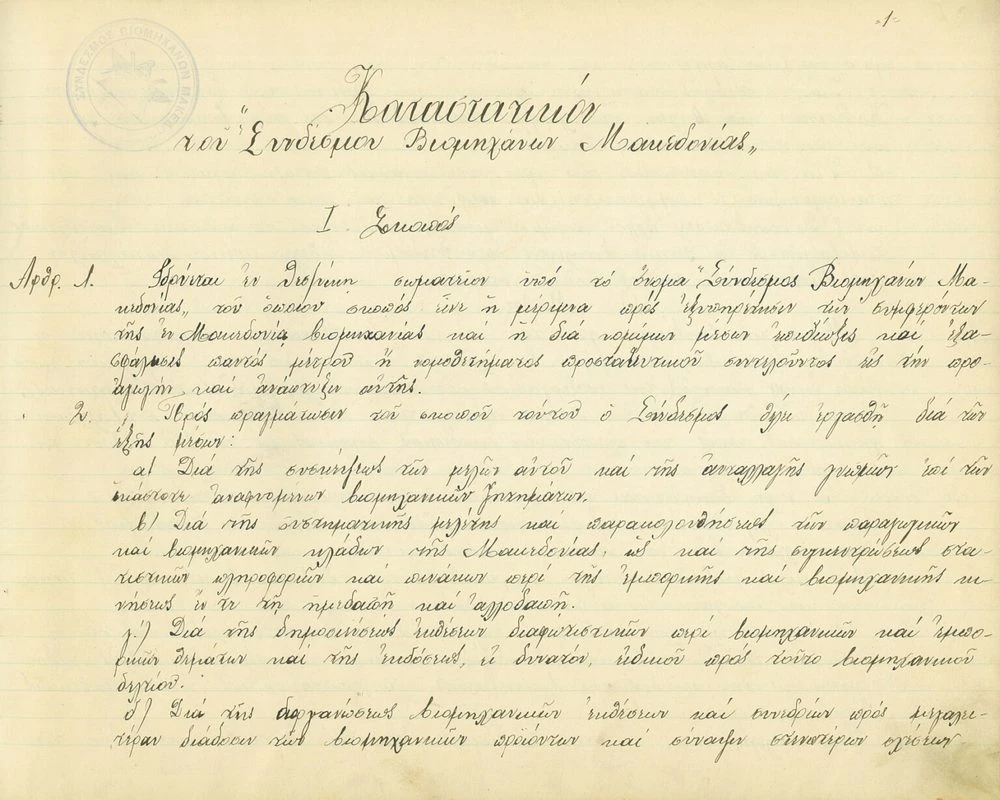 -1-
ΣΥΝΔΕΣΜΟΣ ΒΙΟΜΗΧΑΝΩΝ
Καταστατικόν
τοῦ "Συνδέσμου Βιομηχάνων Μακεδονίας„
I Σκοπός
Ἄρθρ. 1. Ἱδρύεται ἐν Θεσ/νίκῃ σωματεῖον ὑπό τό ὄνομα "Σύνδεσμος Βιομηχάνων Μα-
κεδονίας„ τοῦ ὁποίου σκοπός εἶνε ἡ μέριμνα πρός ἐξυπηρέτησιν τῶν συμφερόντων
τῆς ἐν Μακεδονίᾳ βιομηχανίας καί ἡ διά νομίμων μέσων ἐπιδίωξις καί ἐξα-
σφάλισις παντός μέτρου ἤ νομοθετήματος προστατευτικοῦ συντελοῦντος εἰς τήν προ-
αγωγήν καί ἀνάπτυξιν αὐτῆς.
2. Πρός πραγμάτωσιν τοῦ σκοποῦ τούτου ὁ Σύνδεσμος θέλει ἐργασθῆ διά τῶν
ἑξῆς μέσων:
α) Διά τῆς συσκέψεως τῶν μελῶν αὐτοῦ καί τῆς ἀνταλλαγῆς γνωμῶν ἐπί τῶν
ἑκάστοτε ἀναφυομένων βιομηχανικῶν ζητημάτων.
β) Διά τῆς συστηματικῆς μελέτης καί παρακολουθήσεως τῶν παραγωγικῶν
καί βιομηχανικῶν κλάδων τῆς Μακεδονίας, ὡς καί τῆς συγκεντρώσεως στα-
τιστικῶν πληροφοριῶν καί πινάκων περί τῆς ἐμπορικῆς καί βιομηχανικῆς κι-
νήσεως ἔν τε τῇ ἡμεδαπῇ καί ἀλλοδαπῇ.
γ.) Διά τῆς δημοσιεύσεως ἐκθέσεων διαφωτιστικῶν περί βιομηχανικῶν καί ἐμπο-
ρικῶν θεμάτων καί τῆς ἐκδόσεως, εἰ δυνατόν, εἰδικοῦ πρός τοῦτο βιομηχανικοῦ
δελτίου.
δ) Διά τῆς διοργανώσεως βιομηχανικῶν ἐκθέσεων καί συνεδρίων πρός μεγαλει-
τέραν διάδοσιν τῶν βιομηχανικῶν προϊόντων καί σύναψιν στενωτέρων σχέσεων